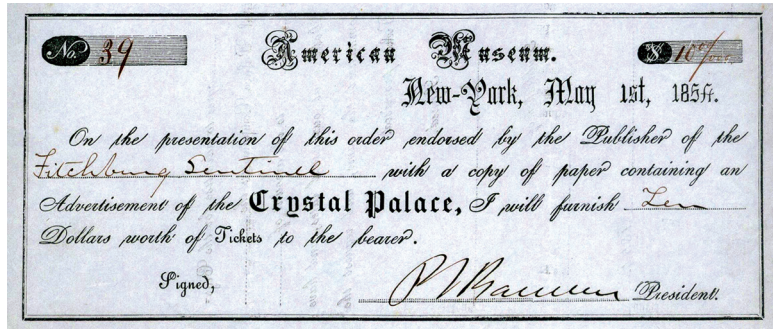 No. 39 American Museum. $ 10 00/100
New-York, May 1st, 1854.
On the presentation of this order endorsed by the Publisher of the
Fitchburg Sentinel with a copy of paper containing an
Advertisement of the Crystal Palace, I will furnish Ten
Dollars worth of Tickets to the bearer.
Signed, P T Barnum President.